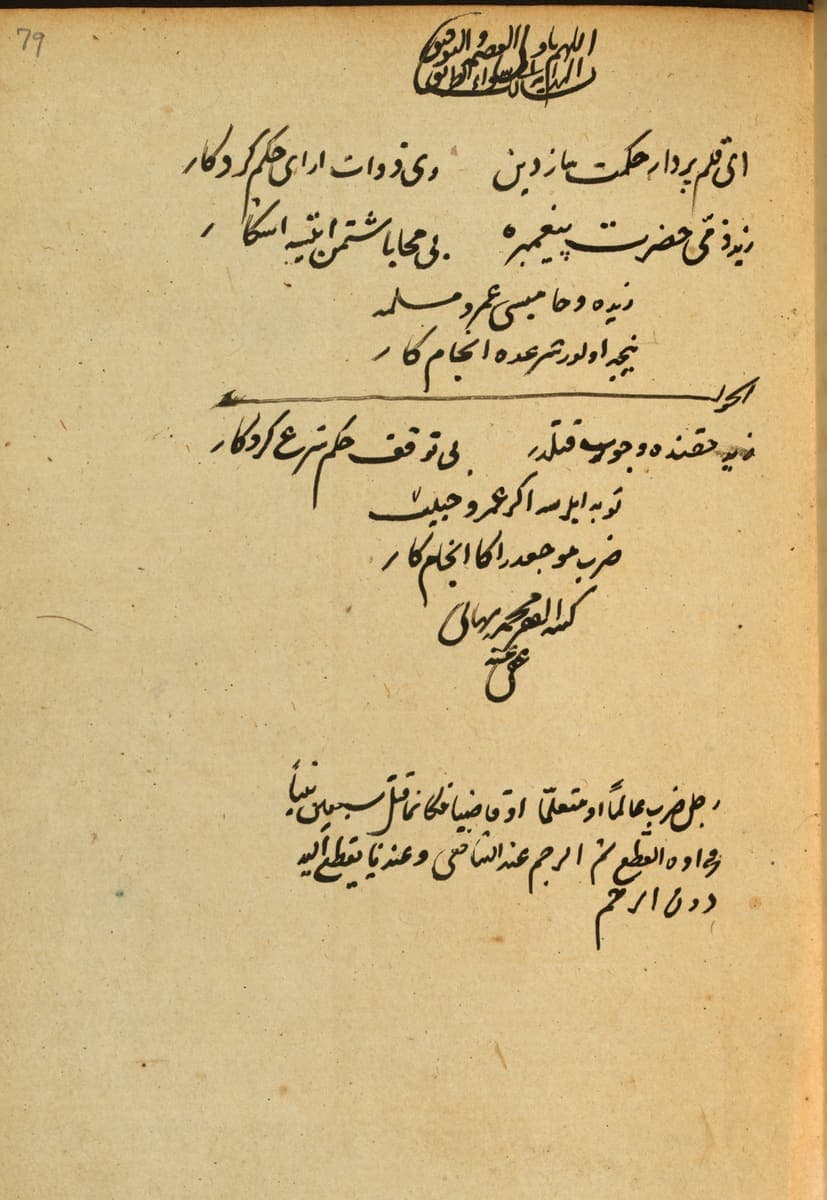 79
اللهم يا ولي العصمة والتوفيق
الهداية الى سواء الطريق
ای قلم بردار حکمت ساز دین وی دوات ارای حکم کردکار
زید ذمی حضرت پیغمبره بی محابا شتمن ایتسه اشکار
زیده وحامیسی عمرو مسلمه
نیجه اولور شرعده انجام کار
الجواب
زید حقنده وجوب قتلدر بی توقف حکم شرع کردکار
توبه ایلرسه اکر عمرو خبیث
ضرب موجعدر اکا انجام کار
كتبه الفقير محمد بهائى
عفى عنه
رجل ضرب عالمًا او متعلمًا او قاضيا فكانما قتل سبعين نبيًا
وجزاؤه القطع ثم الرجم عند الشافعى وعندنا يقطع اليد
دون الرجم